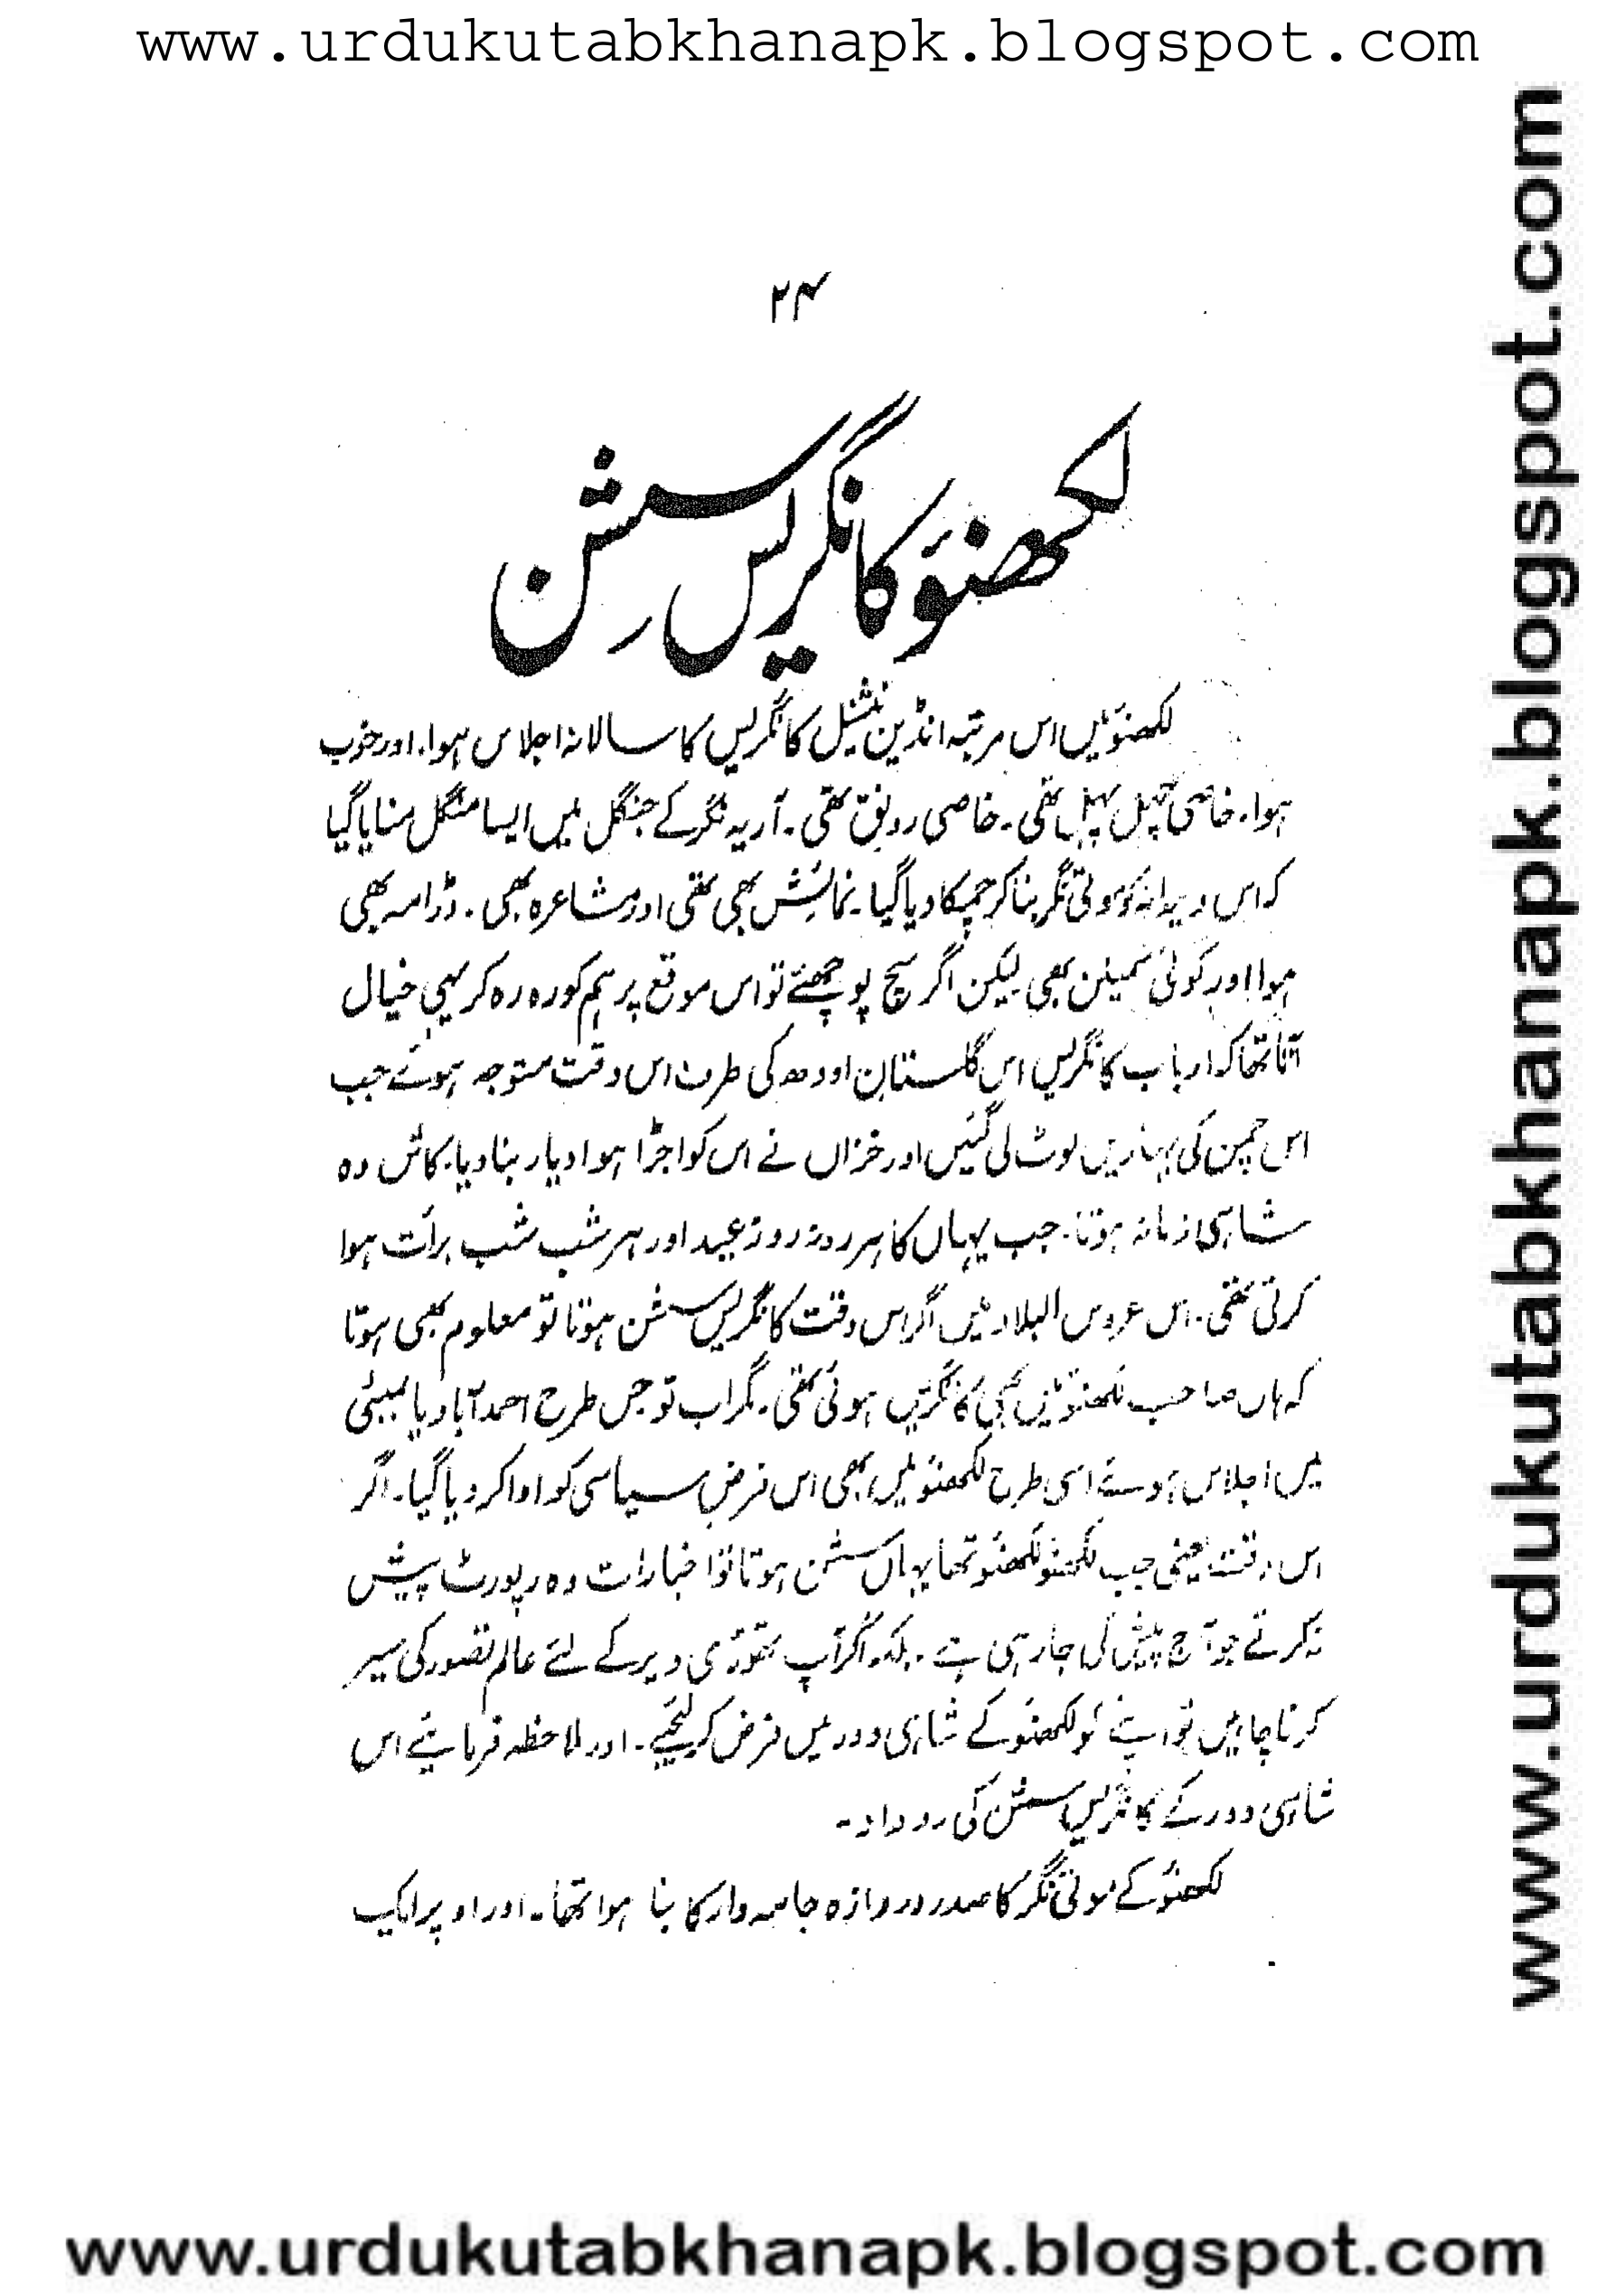 www.urdukutabkhanapk.blogspot.com
۲۴
لکھنؤ کانگریس سشن
لکھنؤ میں اس مرتبہ انڈین نیشنل کانگریس کا سالانہ اجلاس ہوا۔ اور خوب
ہوا۔ خاصی چہل پہل تھی۔ خاصی رونق تھی۔ آریہ نگر کے جنگل میں ایسا منگل منایا گیا
کہ اس ویرانہ کو موتی نگر بنا کر چمکا دیا گیا۔ نمائش بھی تھی اور مشاعرہ بھی۔ ڈرامہ بھی
ہوا اور کوئی سمیلن بھی لیکن اگر سچ پوچھئے تو اس موقع پر ہم کو رہ رہ کر یہی خیال
آتا تھا کہ ارباب کانگریس اس گلستانِ اودھ کی طرف اس وقت متوجہ ہوئے جب
اس چمن کی بہاریں لوٹ لی گئیں اور خزاں نے اس کو اجڑا ہوا دیار بنا دیا۔ کاش وہ
شاہی زمانہ ہوتا۔ جب یہاں کا ہر روز روز عید اور ہر شب شب برأت ہوا
کرتی تھی۔ اس عروس البلاد میں اگر اس وقت کانگریس سشن ہوتا تو معلوم بھی ہوتا
کہ ہاں صاحب لکھنؤ میں بھی کانگریس ہوئی تھی۔ مگر اب تو جس طرح احمد آباد یا بمبئی
میں اجلاس ہوئے اسی طرح لکھنؤ میں بھی اس فرضِ سیاسی کو ادا کر دیا گیا۔ اگر
اس وقت یعنی جب لکھنؤ لکھنؤ تھا یہاں سشن ہوتا تو اخبارات وہ رپورٹ پیش
نہ کرتے جو آج پیش کی جا رہی ہے۔ بلکہ اگر آپ تھوڑی دیر کے لئے عالم تصور کی سیر
کرنا چاہیں تو اپنے کو لکھنؤ کے شاہی دور میں فرض کر لیجئے۔ اور ملاحظہ فرمائیے اس
شاہی دور کے کانگریس سشن کی روداد۔
لکھنؤ کے موتی نگر کا صدر دروازہ جامہ وار کا بنا ہوا تھا۔ اور اوپر ایک
www.urdukutabkhanapk.blogspot.com
www.urdukutabkhanapk.blogspot.com